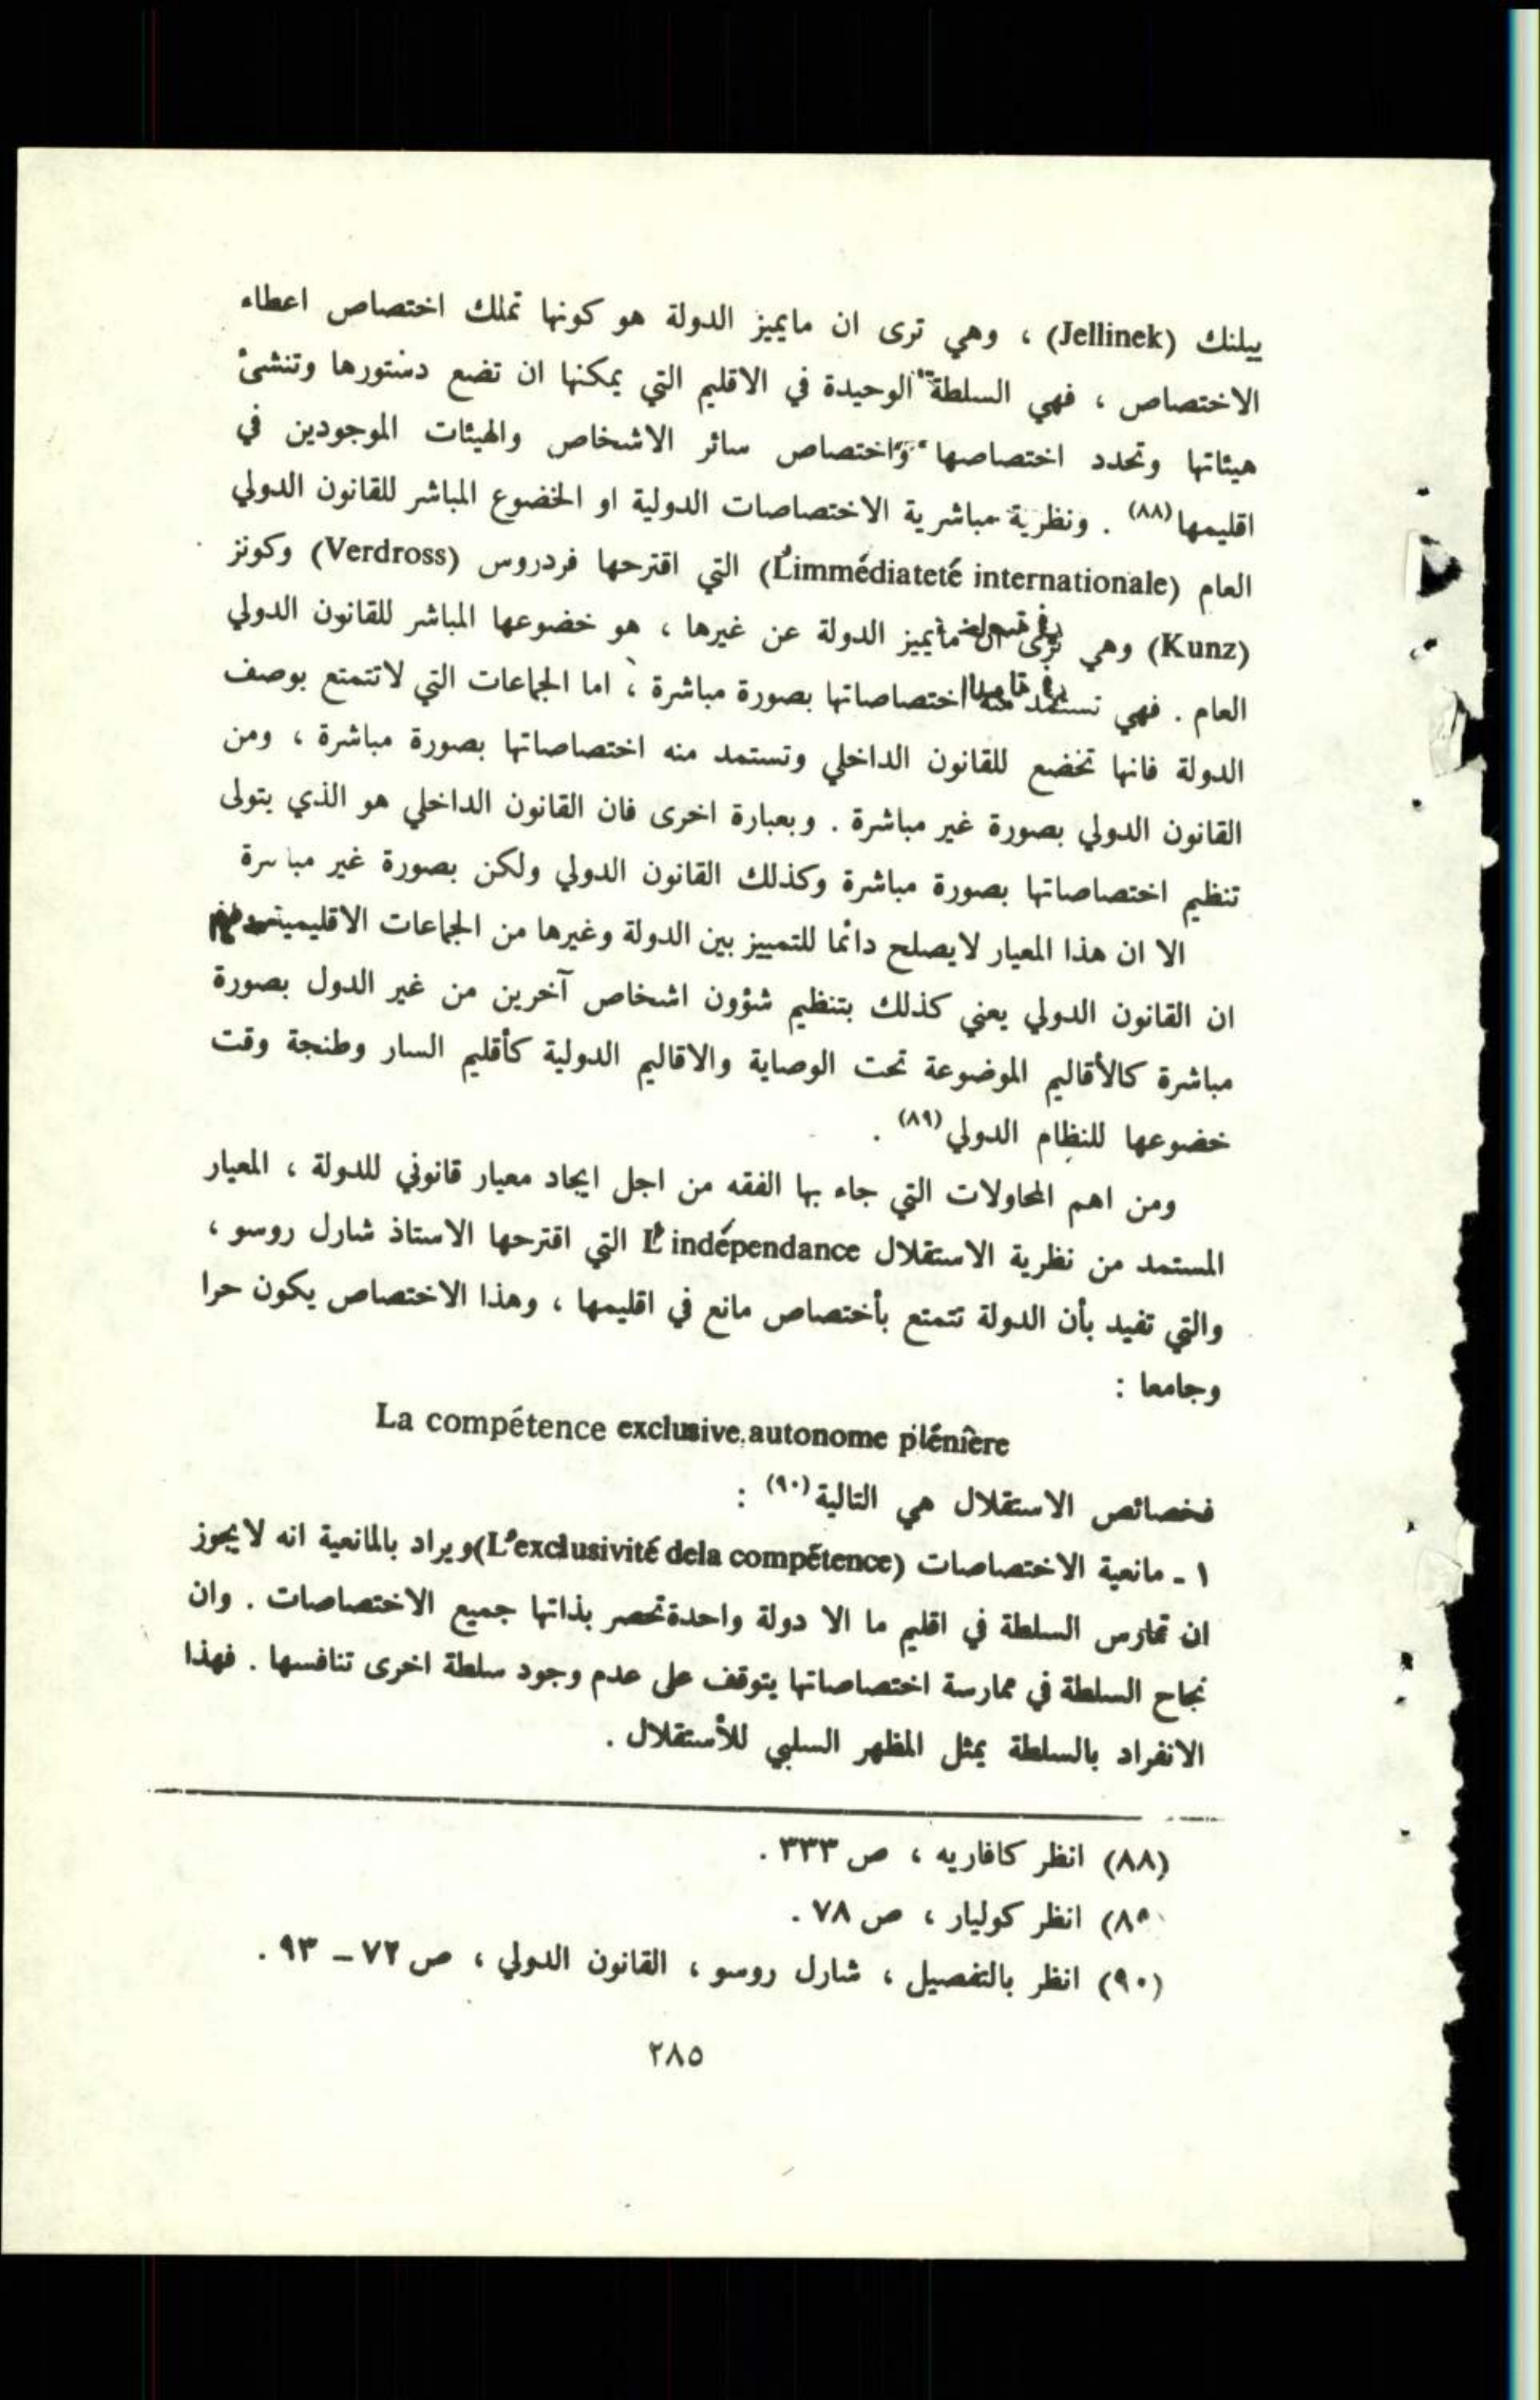 ييلنك (Jellinek) ، وهي ترى ان مايميز الدولة هو كونها تملك اختصاص اعطاء
الاختصاص ، فهي السلطة الوحيدة في الاقليم التي يمكنها ان تضع دستورها وتنشئ
هيئاتها وتحدد اختصاصها واختصاص سائر الاشخاص والهيئات الموجودين في
اقليمها(٨٨) . ونظرية مباشرية الاختصاصات الدولية او الخضوع المباشر للقانون الدولي
العام (L'immédiateté internationale) التي اقترحها فردروس (Verdross) وكونز
(Kunz) وهي ترى ان مايميز الدولة عن غيرها ، هو خضوعها المباشر للقانون الدولي
العام . فهي تستمد منه اختصاصاتها بصورة مباشرة ، اما الجماعات التي لاتتمتع بوصف
الدولة فانها تخضع للقانون الداخلي وتستمد منه اختصاصاتها بصورة مباشرة ، ومن
القانون الدولي بصورة غير مباشرة . وبعبارة اخرى فان القانون الداخلي هو الذي يتولى
تنظيم اختصاصاتها بصورة مباشرة وكذلك القانون الدولي ولكن بصورة غير مباشرة
الا ان هذا المعيار لايصلح دائما للتمييز بين الدولة وغيرها من الجماعات الاقليمية
ان القانون الدولي يعني كذلك بتنظيم شؤون اشخاص آخرين من غير الدول بصورة
مباشرة كالأقاليم الموضوعة تحت الوصاية والاقاليم الدولية كأقليم السار وطنجة وقت
خضوعها للنظام الدولي(٨٩) .
ومن اهم المحاولات التي جاء بها الفقه من اجل ايجاد معيار قانوني للدولة ، المعيار
المستمد من نظرية الاستقلال L'indépendance التي اقترحها الاستاذ شارل روسو ،
والتي تفيد بأن الدولة تتمتع بأختصاص مانع في اقليمها ، وهذا الاختصاص يكون حرا
وجامعا :
La compétence exclusive, autonome plénière
فخصائص الاستقلال هي التالية(٩٠) :
١ - مانعية الاختصاصات (L'exclusivité dela compétence) ويراد بالمانعية انه لايجوز
ان تمارس السلطة في اقليم ما الا دولة واحدة تحصر بذاتها جميع الاختصاصات . وان
نجاح السلطة في ممارسة اختصاصاتها يتوقف على عدم وجود سلطة اخرى تنافسها . فهذا
الانفراد بالسلطة يمثل المظهر السلبي للأستقلال .
(٨٨) انظر كافاريه ، ص ٣٣٣ .
(٨٩) انظر كوليار ، ص ٧٨ .
(٩٠) انظر بالتفصيل ، شارل روسو ، القانون الدولي ، ص ٧٢ - ٩٣ .
٢٨٥